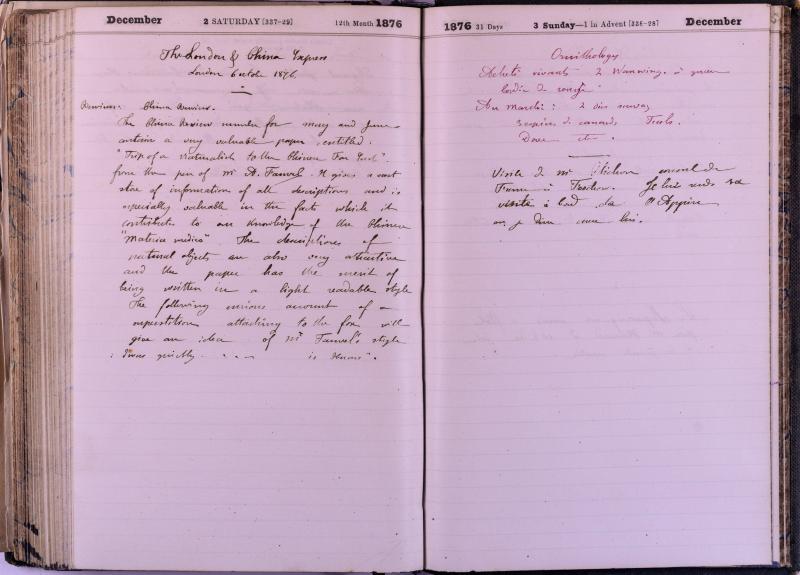 December 2 SATURDAY [337-29] 12th Month 1876
The London & China Express
London 6 octobre 1876
Reviews: China Review.
The China Review number for may and June
contain a very valuable paper entitled.
"Trip of a Naturalist to the Chinese Far East".
from the pen of Mr A. Fauvel. It gives a vast
store of information of all descriptions and is
especially valuable in the fact while it
contributes to our knowledge of the Chinese
"Materia medica". The descriptions of
natural objects are also very attractive
and the paper has the merit of
being written in a light readable style
The following curious account of a
superstition attaching to the fox will
give an idea of Mr Fauvel's style
quickly . . . is known".
1876 31 Days 3 Sunday—1 in Advent [338-28] December
Ornithology
Acheté vivants 2 à queue
bordée de rouge
Au Marché : 2 oies
espèces de canards Teals.
Visite de Mr consul de
France à Je lui rends sa
visite à bord du
où je dine avec lui.